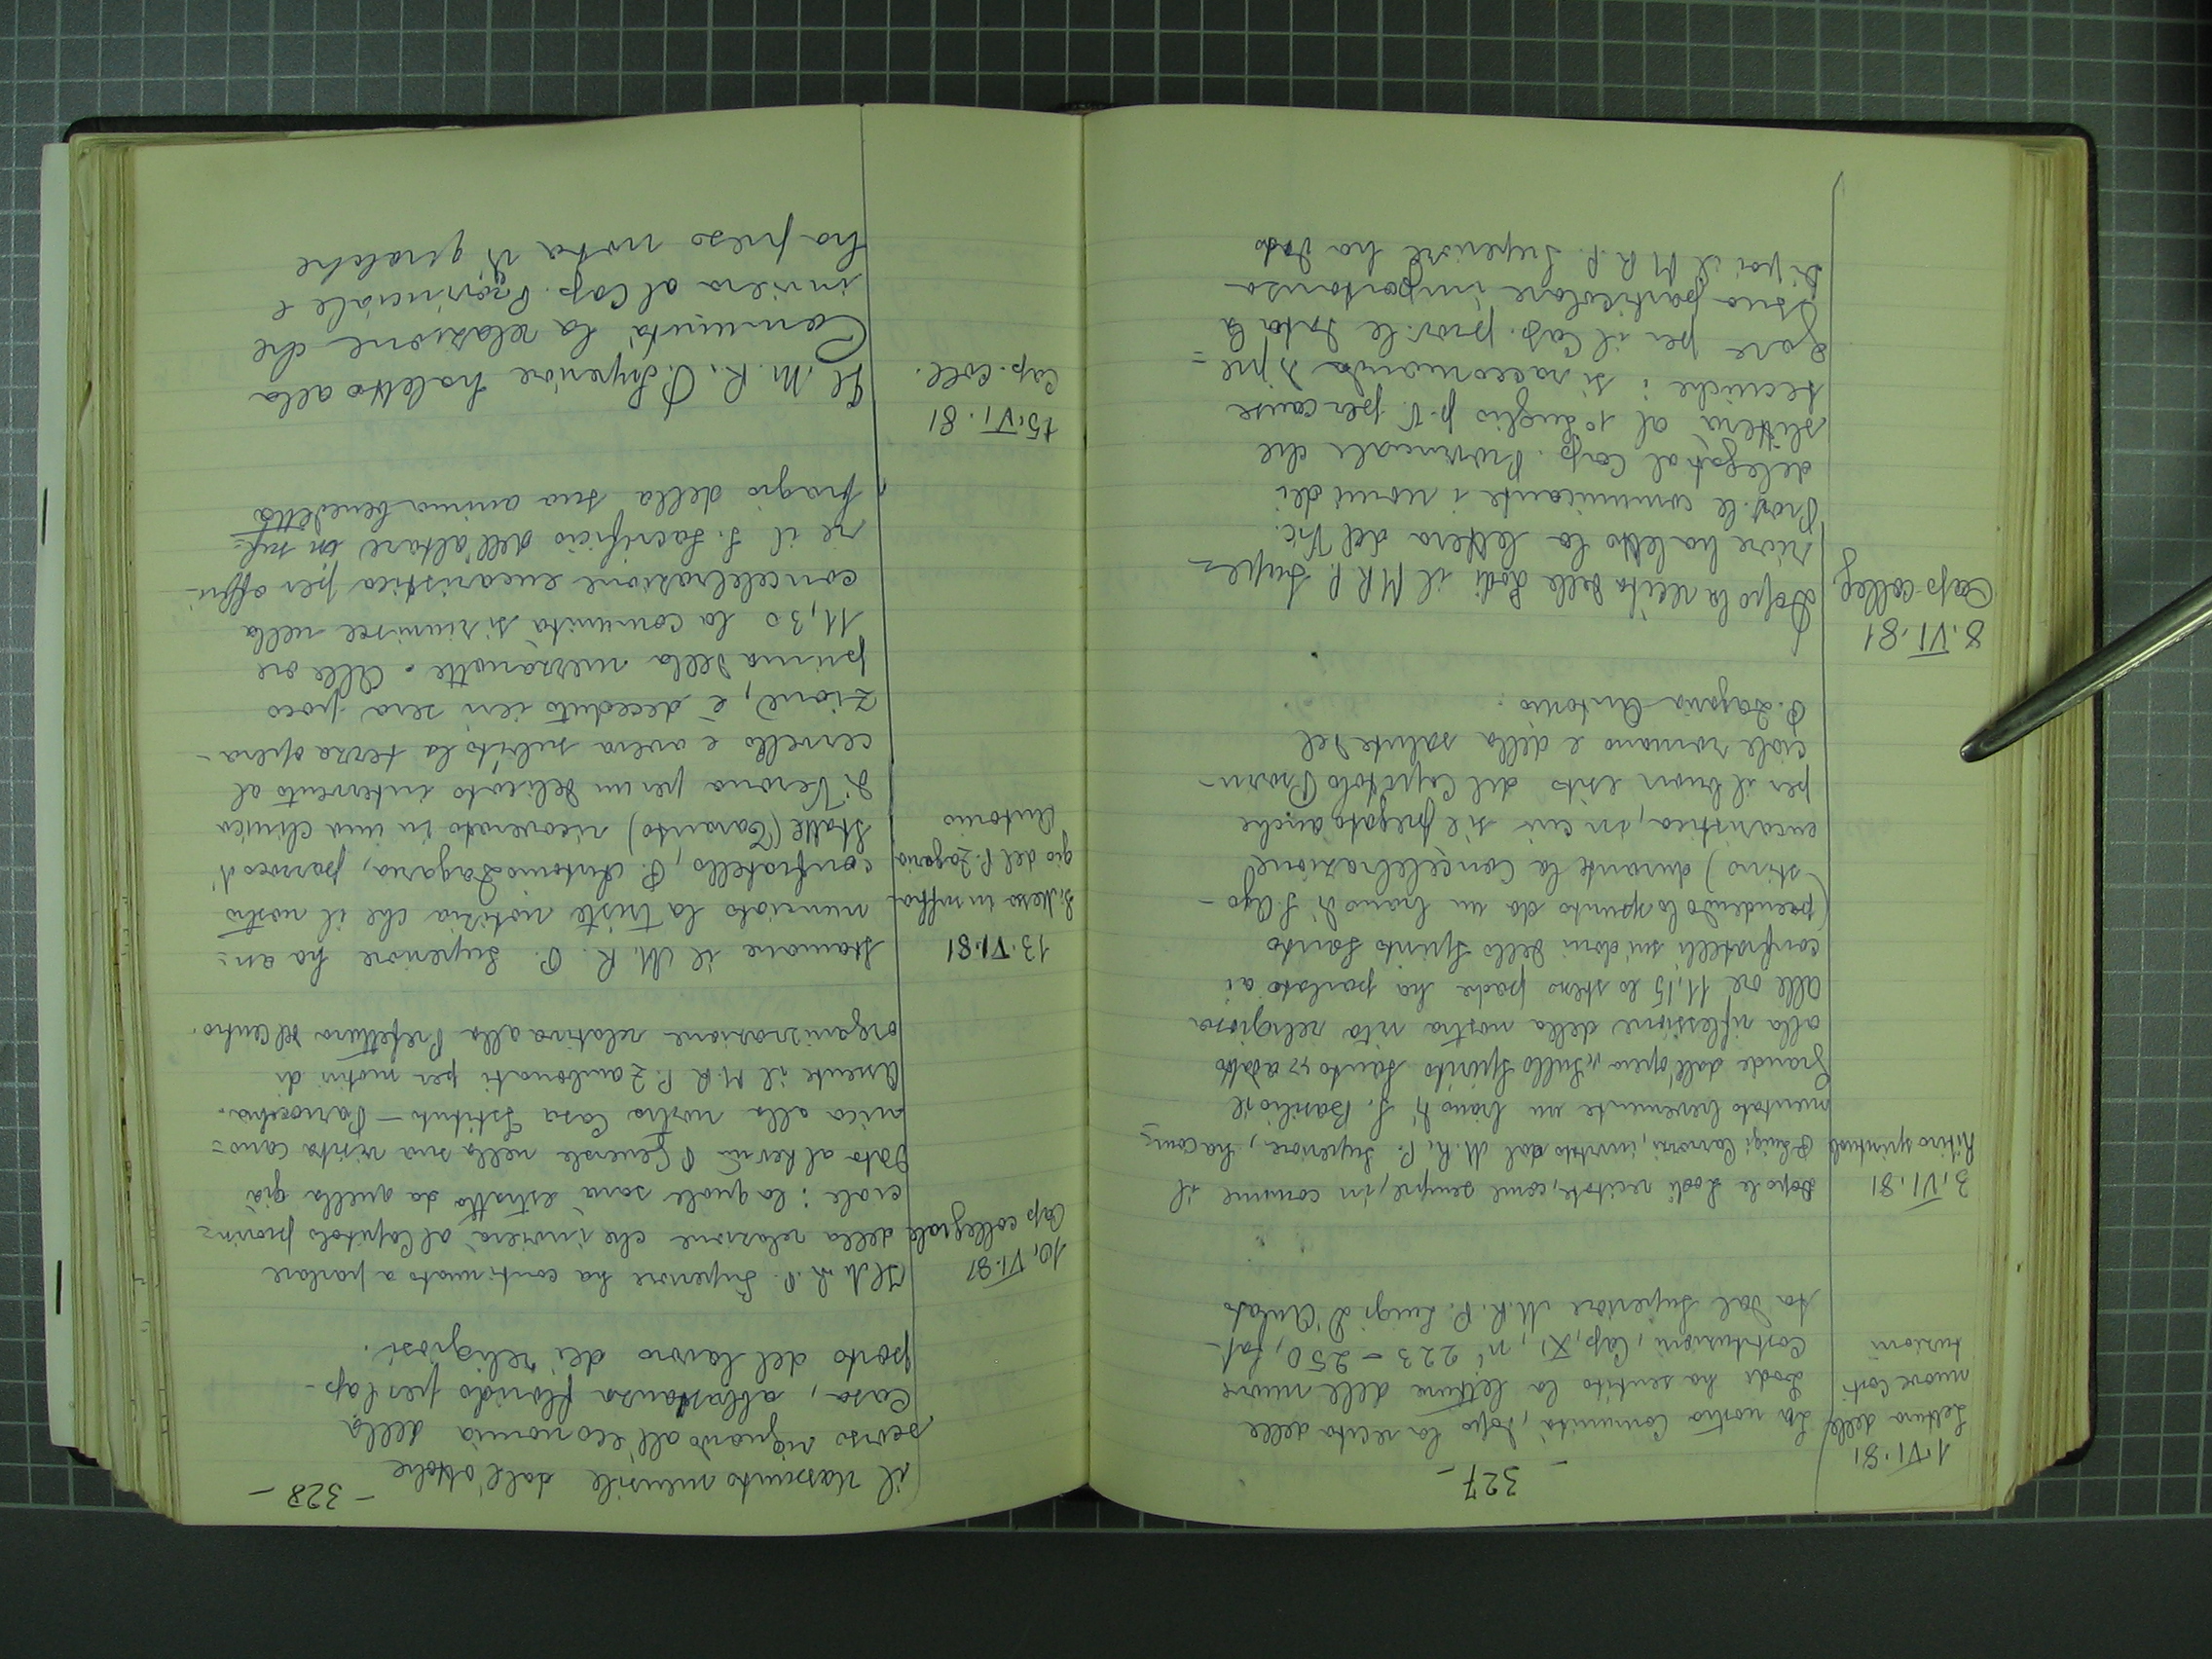 - 327 -
1.VI.81
Lettura delle
nuove Costi
tuzioni
La nostra Comunità, dopo la recita delle
Lodi ha sentito la lettura delle nuove
Costituzioni, Cap. XI, nⁱ 223 - 250, fat-
ta dal Superiore M. R. P. Luigi D'Amato
3.VI.81
Ritiro spirituale
Dopo le Lodi recitate, come sempre, in comune il
P. Luigi Carrozzi, invitato dal M. R. P. Superiore, ha com=
mentato brevemente un brano di S. Basilio il
Grande dall'opera "Sullo Spirito Santo" adatto
alla riflessione della nostra vita religiosa
alle ore 11,15 lo stesso padre ha parlato ai
confratelli sui doni dello Spirito Santo
(prendendo lo spunto da un brano di S. Ago-
stino) durante la Concelebrazione
eucaristica, in cui si è pregato anche
per il buon esito del Capitolo Provin-
ciale romano e della salute del
P. Zagaria Antonio.
8.VI.81
Cap. colleg.
Dopo la recita delle Lodi il M R P. Supe=
riore ha letto la lettera del Vic.
Prov.le comunicante i nomi dei
delegati al Cap. Provinciale che
slitterà al 1° luglio p.v. per cause
tecniche: si raccomanda di pre=
gare per il Cap. prov.le data la
sua particolare importanza
Di poi il M R. P. Superiore ha dato
- 328 -
il riassunto mensile dall'ottobre
scorso riguardo all'economia della
Casa, abbastanza florido per l'ap-
porto del lavoro dei religiosi.
10.VI.81
Cap collegiale
Il M. R. P. Superiore ha continuato a parlare
della relazione che invierà al Capitolo provin=
ciale: la quale sarà estratta da quella già
data al Rev.mo P Generale nella sua visita cano=
nica alla nostra Casa Istituto - Parrocchia.
Assente il M. R. P. Zambonati per motivi di
organizzazione relativa alla Prefettura del Centro.
13.VI.81
S. Messa in suffra
gio del P. Zagaria
Antonio
Stamane il M. R. P. Superiore ha an=
nunciato la triste notizia che il nostro
confratello, P. Antonio Zagaria, parroco di
Statte (Taranto) ricoverato in una clinica
di Verona per un delicato intervento al
cervello e aveva subito la terza opera-
zione, è deceduto ieri sera poco
prima della mezzanotte. Alle ore
11,30 la comunità si riunisce nella
concelebrazione eucaristica per offri-
re il S. Sacrificio dell'altare in suf=
fragio della sua anima benedetta
15.VI.81
Cap. Coll.
Il M. R. P. Superiore ha letto alla
Comunità la relazione che
invierà al Cap. Provinciale e
ha preso nota di qualche